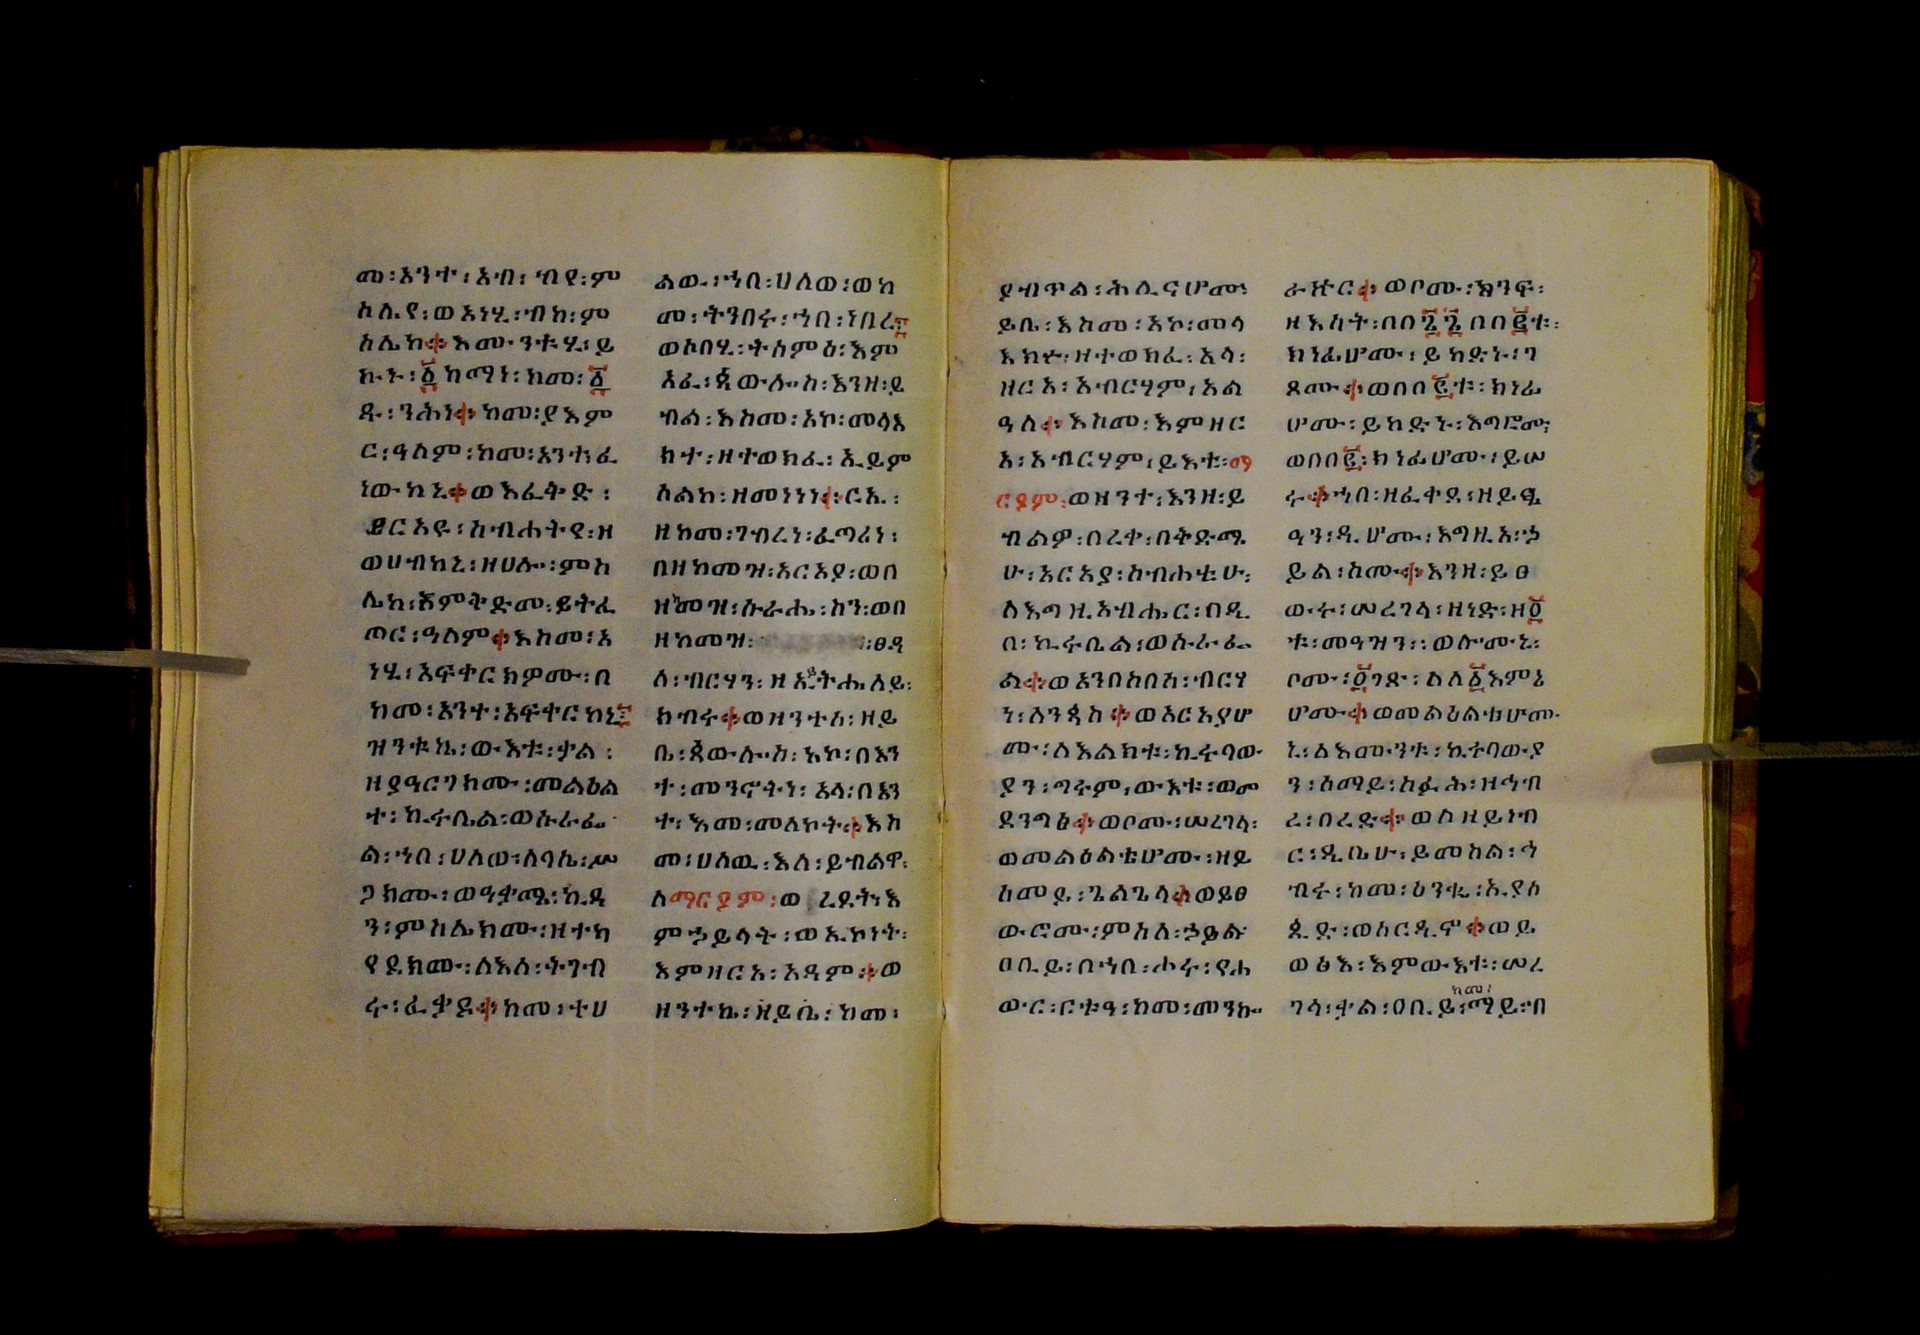 መ፡አንተ፡አብ፡ብየ፡ም
ስሌየ፡ወአነሂ፡ብከ፡ም
ስሌከ፨እሙንቱሂ፡ይ
ኩኑ፡፩ከማነ፡ከመ፡፩
ዱ፡ንሕነ፨ከመ፡ያእም
ር፡ዓለም፡ከመ፡አንተ፡ፈ
ነውከኒ፨ወእፈትድ፡
ይርአዩ፡ስብሐትየ፡ዘ
ወሀብከኒ፡ዘሀሎ፡ምስ
ሌከ፡እምትድመ፡ይትፈ
ጠር፡ዓለም፨እስመ፡አ
ነሂ፡አፍቀርክዎሙ፡በ
ከመ፡አንተ፡አፍቀርከኒ፤
ዝንቱኬ፡ውእቱ፡ቃል፡
ዘያዓርግክሙ፡መልዕል
ተ፡ኪሩቤል፡ወሱራፌ
ል፡ኀበ፡ሀለወ፡ለባሴ፡ሥ
ጋክሙ፡ወዓቃጼ፡ኪዳ
ን፡ምስሌክሙ፡ዘተካ
የደክሙ፡ለእለ፡ትገብ
ሩ፡ፈቃደ፨ከመ፡ተሀ
ልው፡ኀበ፡ሀለወ፡ወከ
መ፡ትንበሩ፡ኀበ፡ነበረ፤
ወኦበሂ፡ትሰምዕ፡እም
አፈ፡ጳውሎስ፡እንዘ፡ይ
ብል፡እስመ፡አኮ፡መላእ
ክተ፡ዘተወክፈ፡ኢይም
ስልከ፡ዘመነነነ፨ርኢ፡
ዘከመ፡ገብረነ፡ፈጣሪነ፡
በዘከመዝ፡አርአያ፡ወበ
ዘከመዝ፡ሱራሔ፡ስን፡ወበ
ዘከመዝ፡ ፡ፀዳ
ለ፡ብርሃን፡ዘኢይትሔለይ፡
ክብሩ፨ወዘንተሰ፡ዘይ
ቤ፡ጳውሎስ፡አኮ፡በእን
ተ፡መንኖትነ፡አላ፡በእን
ተ፡እመ፡መለኮት፨እስ
መ፡ሀለዉ፡እለ፡ይብልዋ፡
ለማርያም፡ወ ረደት፡እ
ምኃይላት፡ወኢኮነት፡
እምዘርአ፡አዳም፨ወ
ዘንተኬ፡ዘይቤ፡ከመ፡
ያብጥል፡ሕሊናሆሙ፡
ይቤ፡እስመ፡አኮ፡መላ
እክተ፡ዘተወክፈ፡አላ፡
ዘርአ፡አብርሃም፡አል
ዓለ፨እስመ፡እምዘር
አ፡አብርሃም፡ይእቲ፡ማ
ርያም፡ወዘንተ፡እንዘ፡ይ
ብልዎ፡በረቀ፡በቅድሜ
ሁ፡አርአያ፡ስብሐቲሁ፡
ለእግዚአብሔር፡በዲ
በ፡ኪሩቤል፡ወሱራፌ
ል፨ወአንበስበሰ፡ብርሃ
ነ፡ለንጳስ፨ወአርአያሆ
ሙ፡ለእልክቱ፡ኪሩባው
ያን፡ግሩም፡ውእቱ፡ወመ
ደንግፅ፨ወቦሙ፡ሠረገላ፡
ወመልዕልቴሆሙ፡ዘይ
ሰመይ፡ጌልጌላ፨ወይፀ
ውርሙ፡ምስለ፡ኃይል፡
ዐቢይ፡በኀበ፡ሐሩ፡የሐ
ውር፡ርቱዓ፡ከመ፡መንኰ
ራዙር፨ወቦሙ፡ክንፍ፡
ዘእሳት፡በበ፮፮በበ፪ቱ፡
ክነፊሆሙ፡ይከድኑ፡ገ
ጾሙ፨ወበበ፪ቱ፡ክነፊ
ሆሙ፡ይከድኑ፡እግሮሙ፡
ወበበ፪፡ክነፊሆሙ፡ይሠ
ሩ፨ኀበ፡ዘፈቀደ፡ዘይፄ
ዓን፡ዲሆሙ፡እግዚአ፡ኃ
ይል፡ስሙ፨እንዘ፡ይፀ
ውሩ፡ሠረገላ፡ዘነድ፡ዘ፬
ቱ፡መዓዝን፡፡ወሎሙኒ፡
ቦሙ፡፬ገጽ፡ለለ፩እምኔ
ሆሙ፨ወመልዕልቴሆሙ
ኒ፡ለእሙንቱ፡ኪሩባውያ
ን፡ሰማይ፡ስፉሕ፡ዘኅብ
ረ፡በረድ፨ወስዘይነብ
ር፡ዲቤሁ፡ይመስል፡ኅ
ብሩ፡ከመ፡ዕንቈ፡ኢያሰ
ጲድ፡ወሰርዲኖ፨ወይ
ወፅእ፡እምውእቱ፡ሠረ
ከመ፡
ገላ፡ቃል፡ዐቢይ፡ማይ፡በ